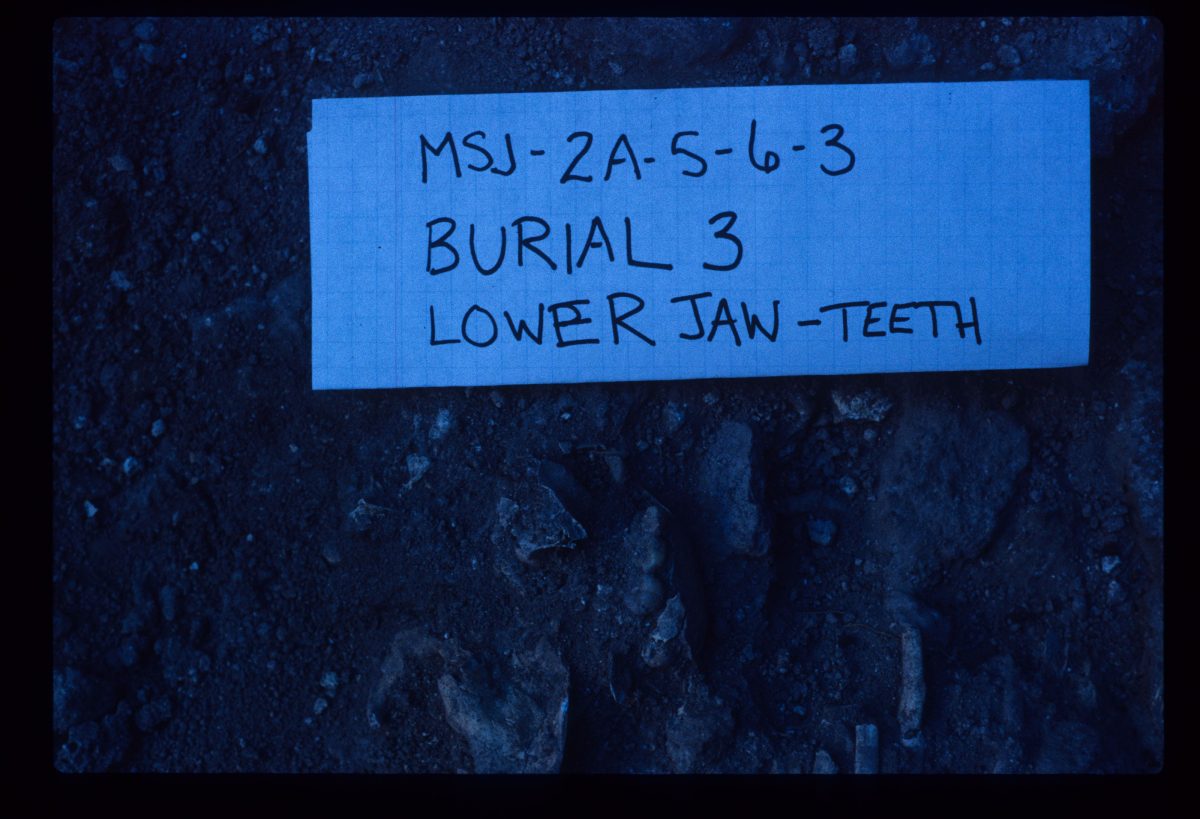 MSJ-2A-5-6-3
BURIAL 3
LOWER JAW-TEETH